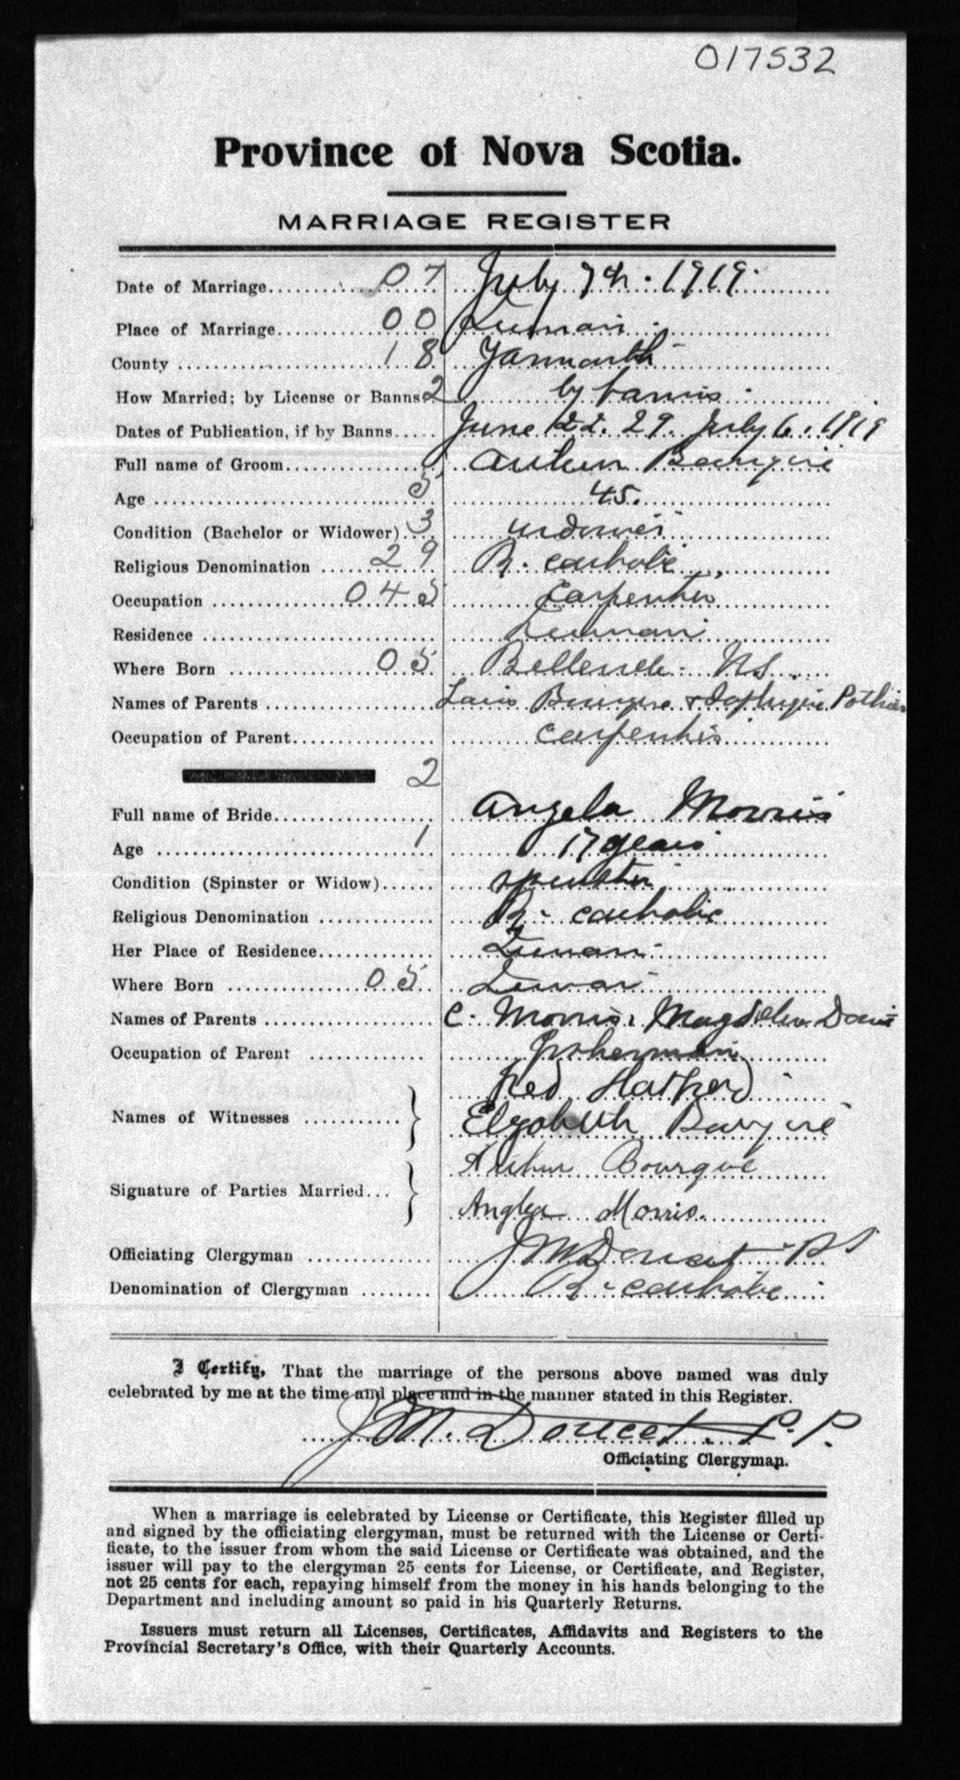 017532
Province of Nova Scotia.
MARRIAGE REGISTER
Date of Marriage 07 July 7th. 1919.
Place of Marriage 00
County 18 Yarmouth
How Married; by License or Banns 2 by banns
Dates of Publication, if by Banns June 22. 29. July 6. 1919
Full name of Groom Arthur Bourque
Age 5 45.
Condition (Bachelor or Widower) 3 widower
Religious Denomination 29 R. catholic
Occupation 045 Carpenter
Residence
Where Born 05 Belleville N.S.
Names of Parents Louis Bourque & Pothier
Occupation of Parent carpenter
2
Full name of Bride Angela Morris
Age 1 17 years
Condition (Spinster or Widow) spinster
Religious Denomination R. catholic
Her Place of Residence
Where Born 05
Names of Parents C. Morris, Magdelen
Occupation of Parent fisherman
Fred Hatfield
Names of Witnesses Elizabeth Bourque
Arthur Bourque
Signature of Parties Married
Angela Morris.
Officiating Clergyman J M Doucet
Denomination of Clergyman R. catholic
I Certify, That the marriage of the persons above named was duly
celebrated by me at the time and place and in the manner stated in this Register.
J. M. Doucet. P. P.
Officiating Clergyman.
When a marriage is celebrated by License or Certificate, this Register filled up
and signed by the officiating clergyman, must be returned with the License or Certi-
ficate, to the issuer from whom the said License or Certificate was obtained, and the
issuer will pay to the clergyman 25 cents for License, or Certificate, and Register,
not 25 cents for each, repaying himself from the money in his hands belonging to the
Department and including amount so paid in his Quarterly Returns.
Issuers must return all Licenses, Certificates, Affidavits and Registers to the
Provincial Secretary's Office, with their Quarterly Accounts.